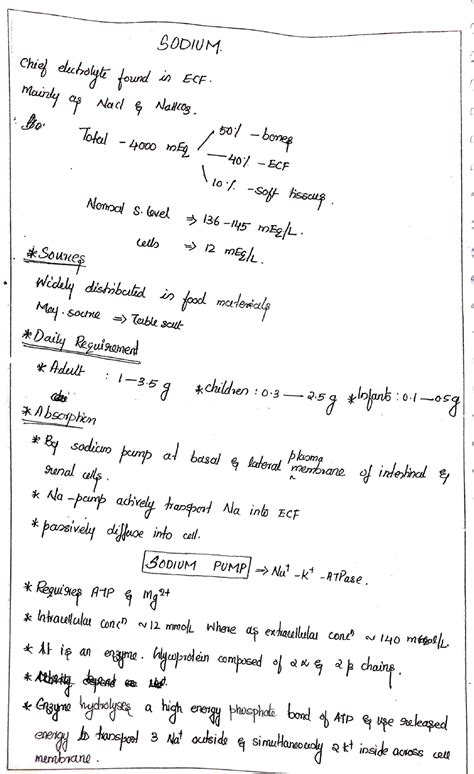 SODIUM.
Chief electrolyte found in ECF.
Mainly as NaCl & NaHCO3.
Total - 4000 mEq
50% - bones
40% - ECF
10% - soft tissues.
Normal S. level ⇒ 136-145 mEq/L.
Cells ⇒ 12 mEq/L.
* Sources
Widely distributed in food materials
May. source ⇒ Table salt
* Daily Requirement
* Adult : 1-3.5 g * children : 0.3 — 2.5 g * Infants : 0.1 - 0.5 g
* Absorption
* By sodium pump at basal & lateral plasma membrane of intestinal &
renal cells.
* Na-pump actively transport Na into ECF
* passively diffuse into cell.
SODIUM PUMP ⇒ Na+-K+-ATPase.
* Requires ATP & Mg2+
* Intracellular concn ~ 12 mmol/L where as extracellular concn ~ 140 mmol/L
* It is an enzyme. Glycoprotein composed of 2α & 2β chains.
* Enzyme hydrolyses a high energy phosphate bond of ATP & use released
energy to transport 3 Na+ outside & simultaneously 2 K+ inside across cell
membrane.